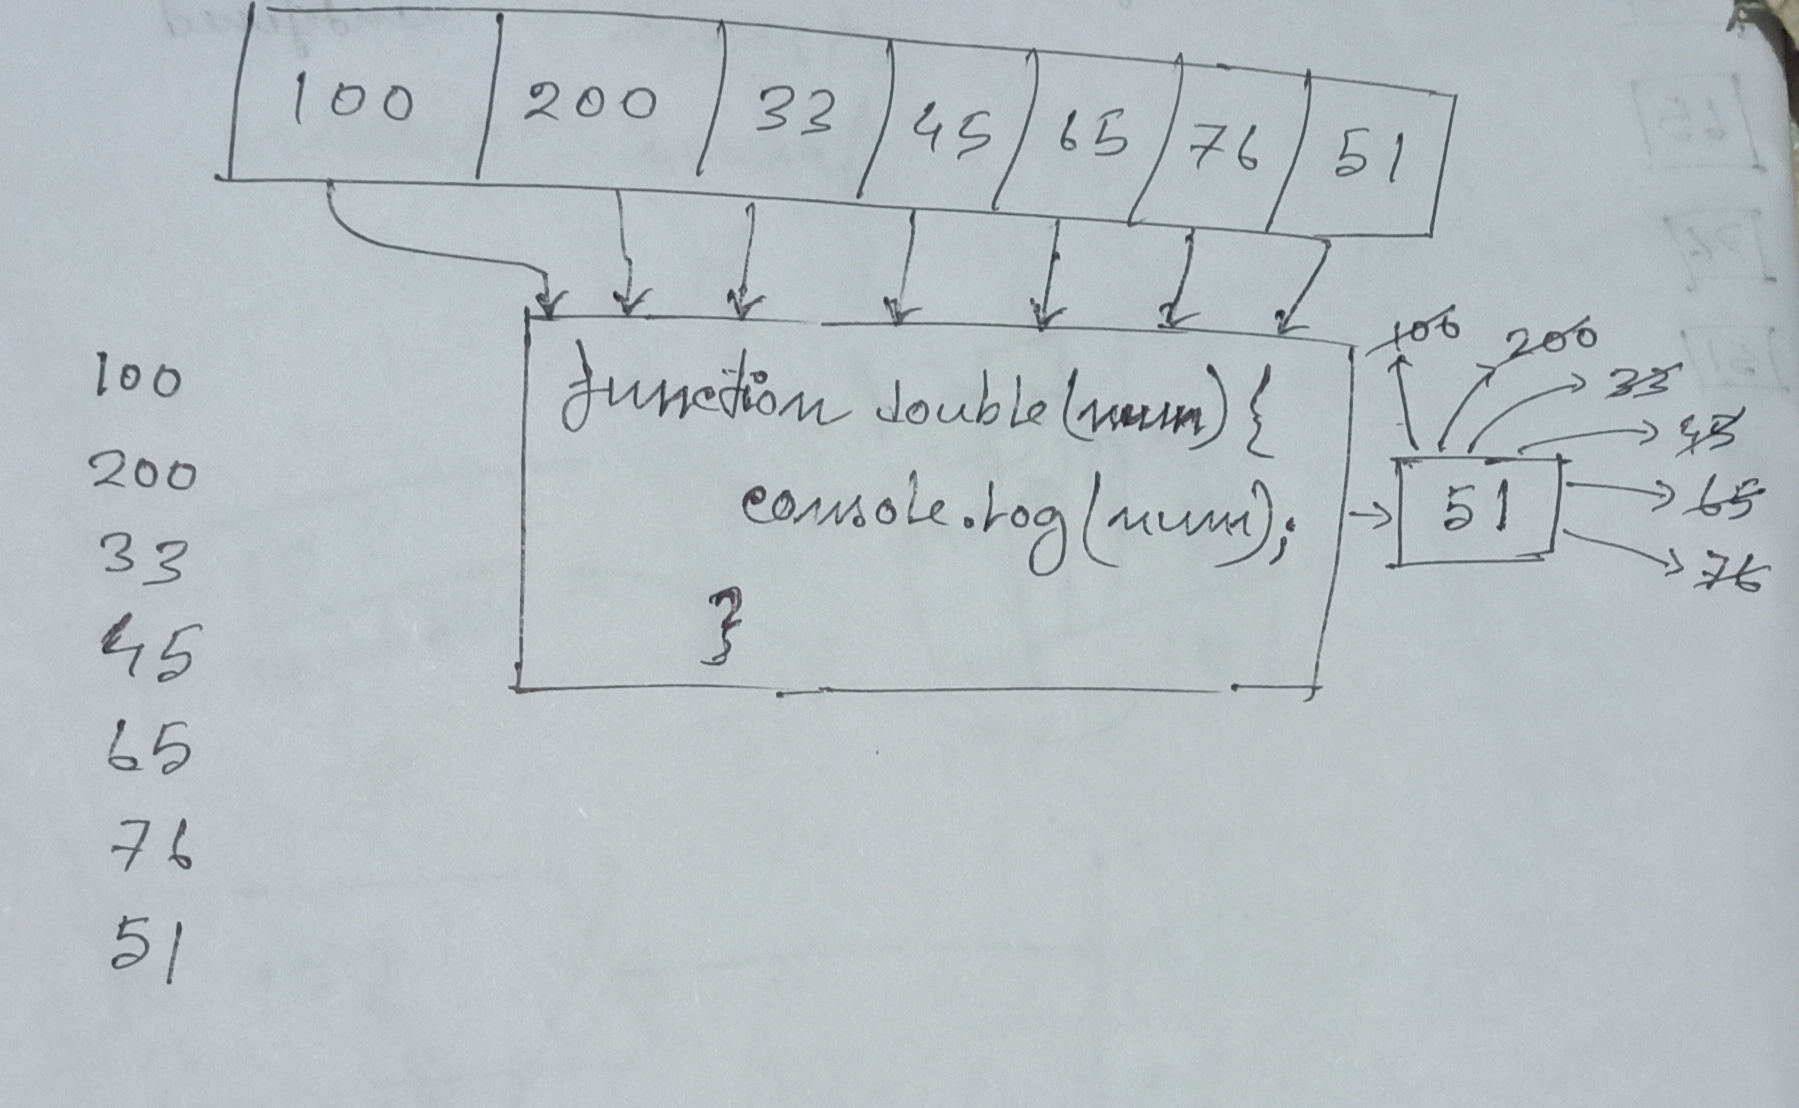 100 200 33 45 65 76 51
function double(num) {
console.log(num);
}
100
200
33
45
65
76
51
100
200
33
45
65
76
51